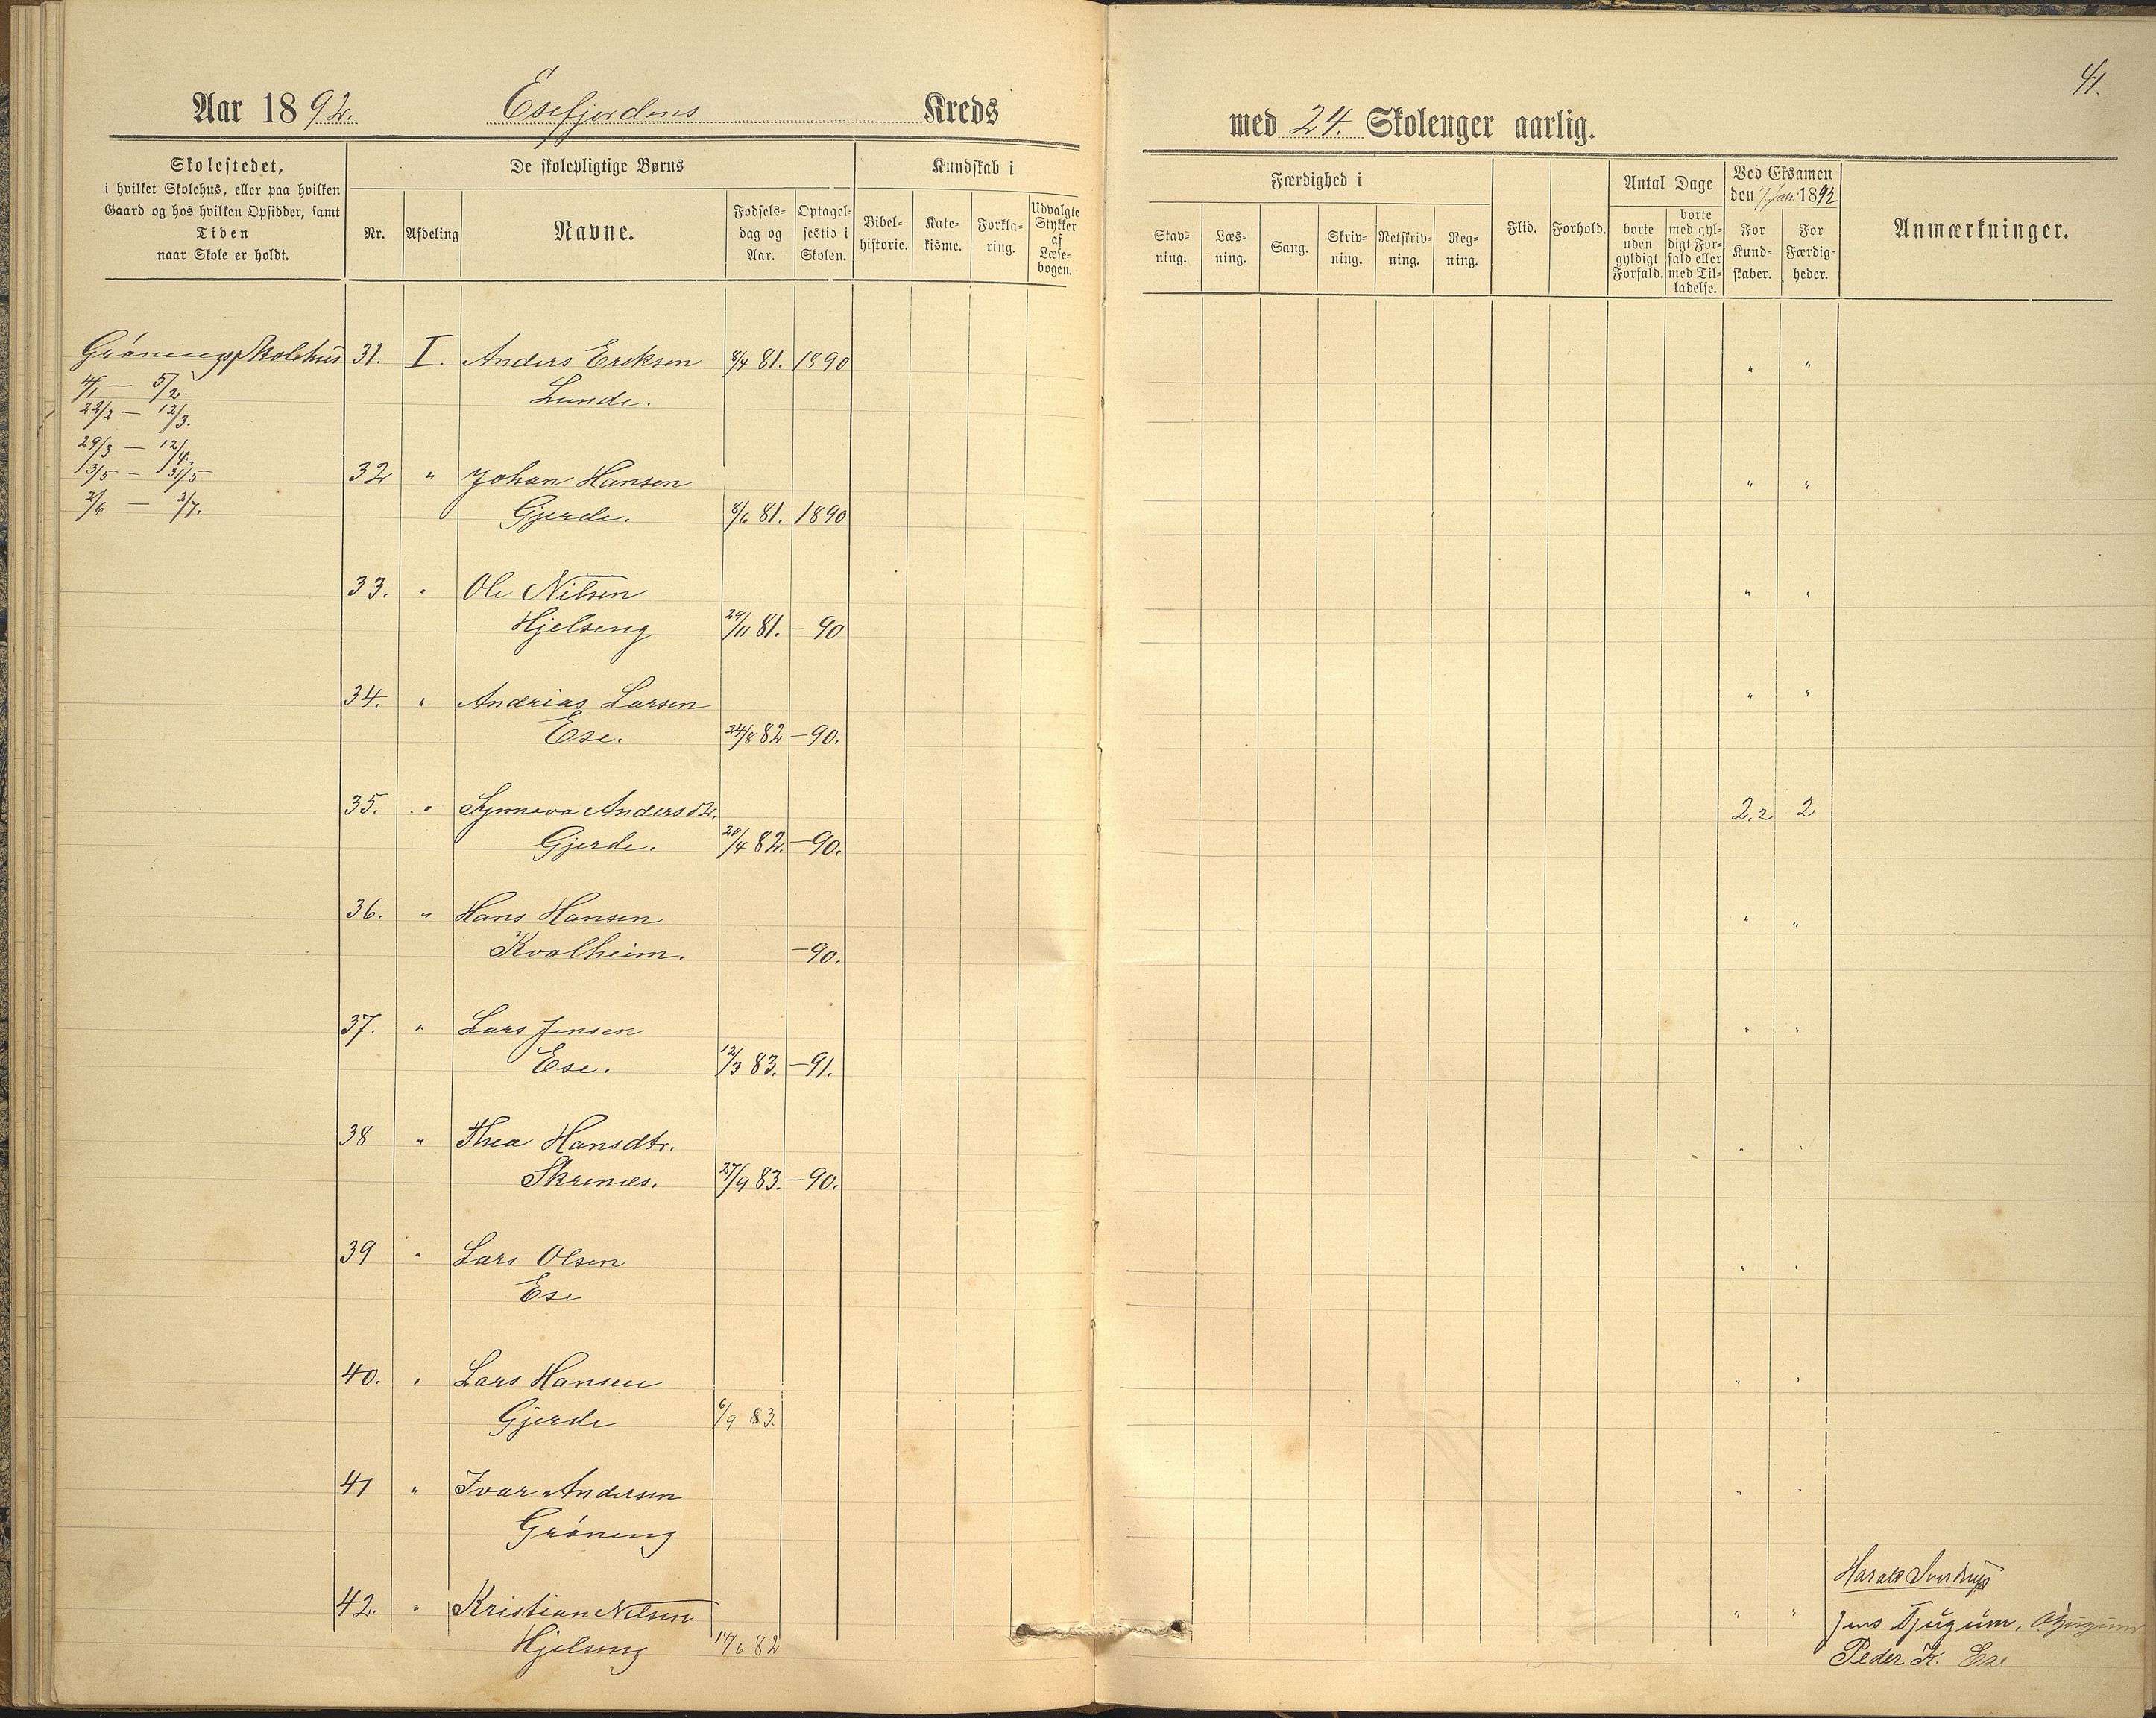 41.
Aar 1892. Esefjordens Kreds
med 24. Skoleuger aarlig.
Skolestedet,
i hvilket Skolehus, eller paa hvilken
Gaard og hos hvilken Opsidder, samt
Tiden
naar Skole er holdt.
De skolepligtige Børns
Nr.
Afdeling
Navne.
Fødsels-
dag og
Aar.
Optagel-
sestid i
Skolen.
Kundskab i
Bibel-
historie.
Kate-
kisme.
Forkla-
ring.
Udvalgte
Stykker
af
Læse-
bogen.
Færdighed i
Stav-
ning.
Læs-
ning.
Sang.
Skriv-
ning.
Retskriv-
ning.
Reg-
ning.
Flid.
Forhold.
Antal Dage
borte
uden
gyldigt
Forfald.
borte
med gyl-
digt For-
fald eller
med Til-
ladelse.
Ved Eksamen
den 7 Juli 1892
For
Kund-
skaber.
For
Færdig-
heder.
Anmærkninger.
Grönengs Skolehus
4/1 — 5/2.
22/2 — 12/3.
29/3 — 12/4.
13/5 — 31/5
2/6 — 2/7.
31. I. Anders Ereksen 8/4 81. 1890 " "
Lunde.
32 " Johan Hansen " "
Gjerde. 8/6 81. 1890
33. " Ole Nilsen " "
Hjelseng 29/11 81. - 90
34. " Andrias Larsen " "
Ese. 24/8 82 - 90.
35. " Synneva Andersdtr. 2.2 2
Gjerde. 20/4 82. - 90.
36. " Hans Hansen " "
Kvalheim. - 90.
37. " Lars Jensen " "
Ese. 12/3 83. - 91.
38 " Thea Hansdtr. " "
Skrenes. 27/9 83. - 90.
39 " Lars Olsen " "
Ese
40. " Lars Hansen " "
Gjerde 6/9 83.
41 " Ivar Andersen " "
Gröneng
42. " Kristian Nilsen " "
Hjelseng 14/6 82
Harald Sverdrup
Jens Tjugum.
Peder K. Ese